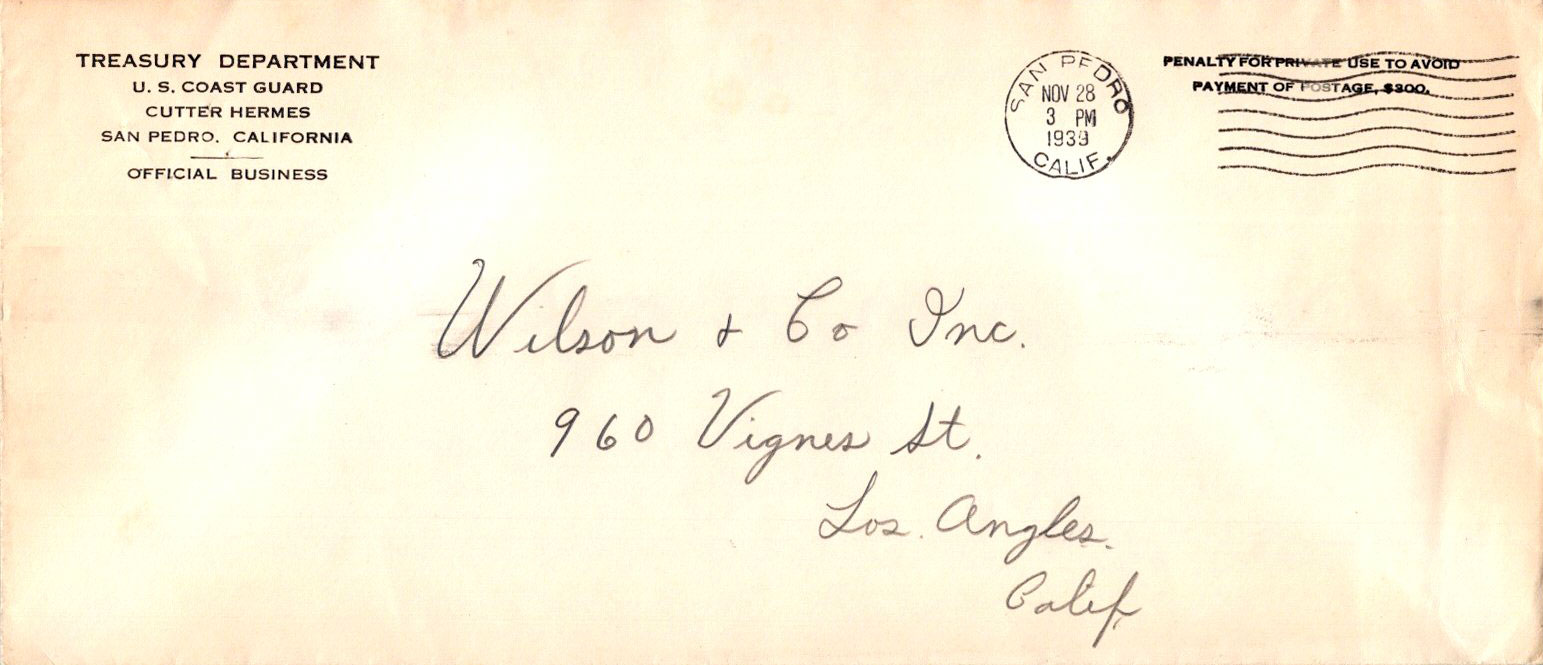 TREASURY DEPARTMENT
U. S. COAST GUARD
CUTTER HERMES
SAN PEDRO, CALIFORNIA
OFFICIAL BUSINESS
SAN PEDRO
NOV 28
3 PM
1939
CALIF.
PENALTY FOR PRIVATE USE TO AVOID
PAYMENT OF POSTAGE, $300.
Wilson + Co Inc.
960 Vignes St.
Los. Angles.
Calif.